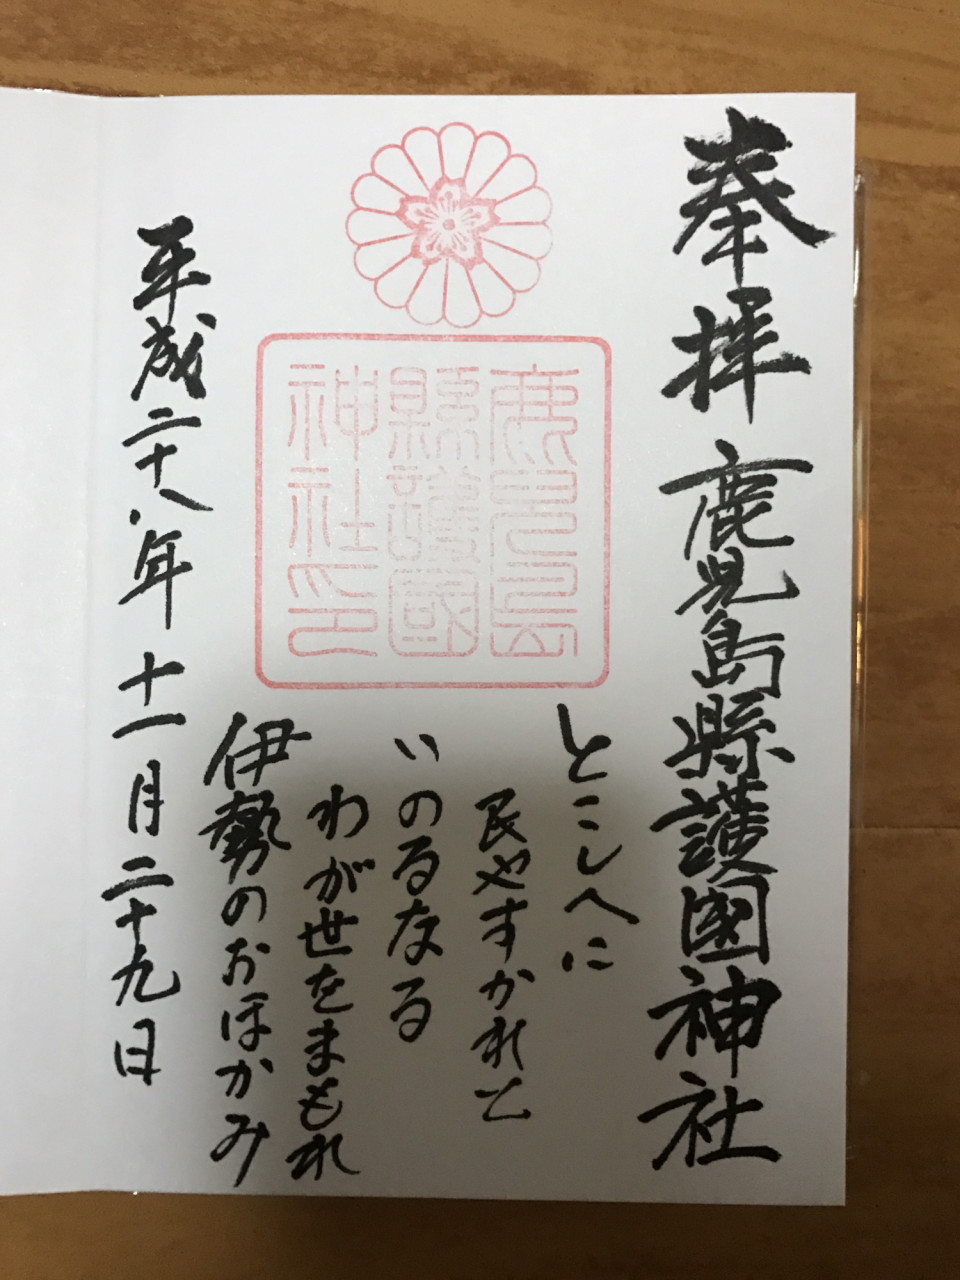 奉拝 鹿児島縣護國神社
鹿児島
縣護國
神社印
とこしへに
民やすかれと
いのるなる
わが世をまもれ
伊勢のおほかみ
平成二十八年 十一月二十九日